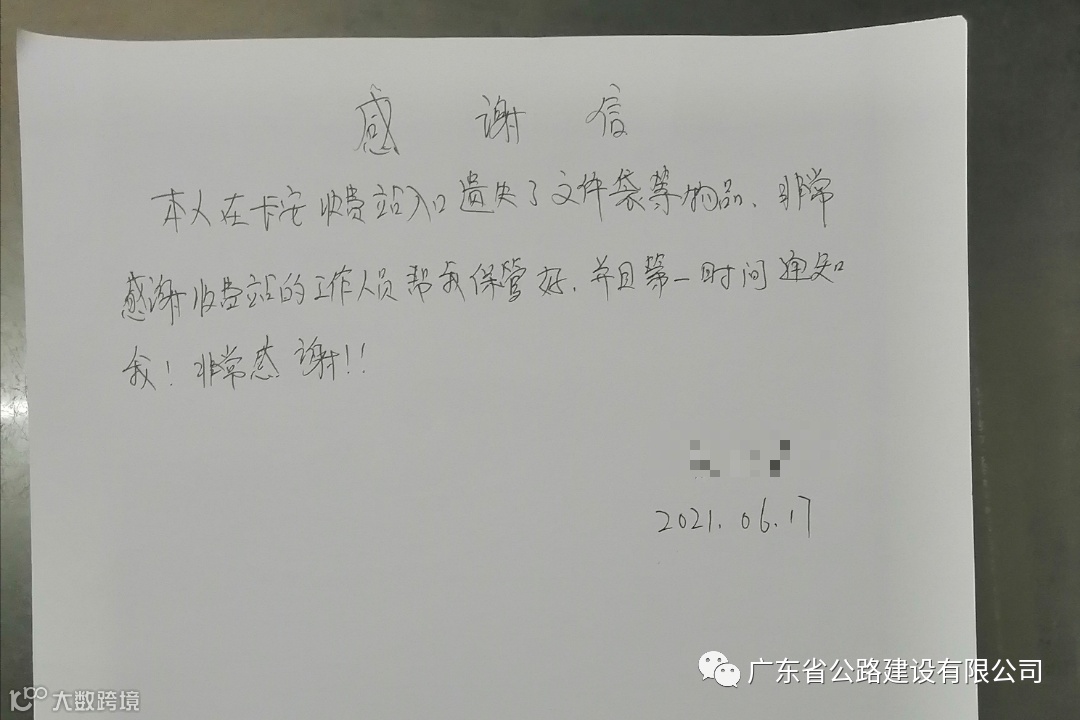 感谢信
本人在卡安收费站入口遗失了文件袋等物品、非常
感谢收费站的工作人员帮我保管好,并且第一时间通知
我!非常感谢!!
2021.06.17
广东省公路建设有限公司
大数跨境